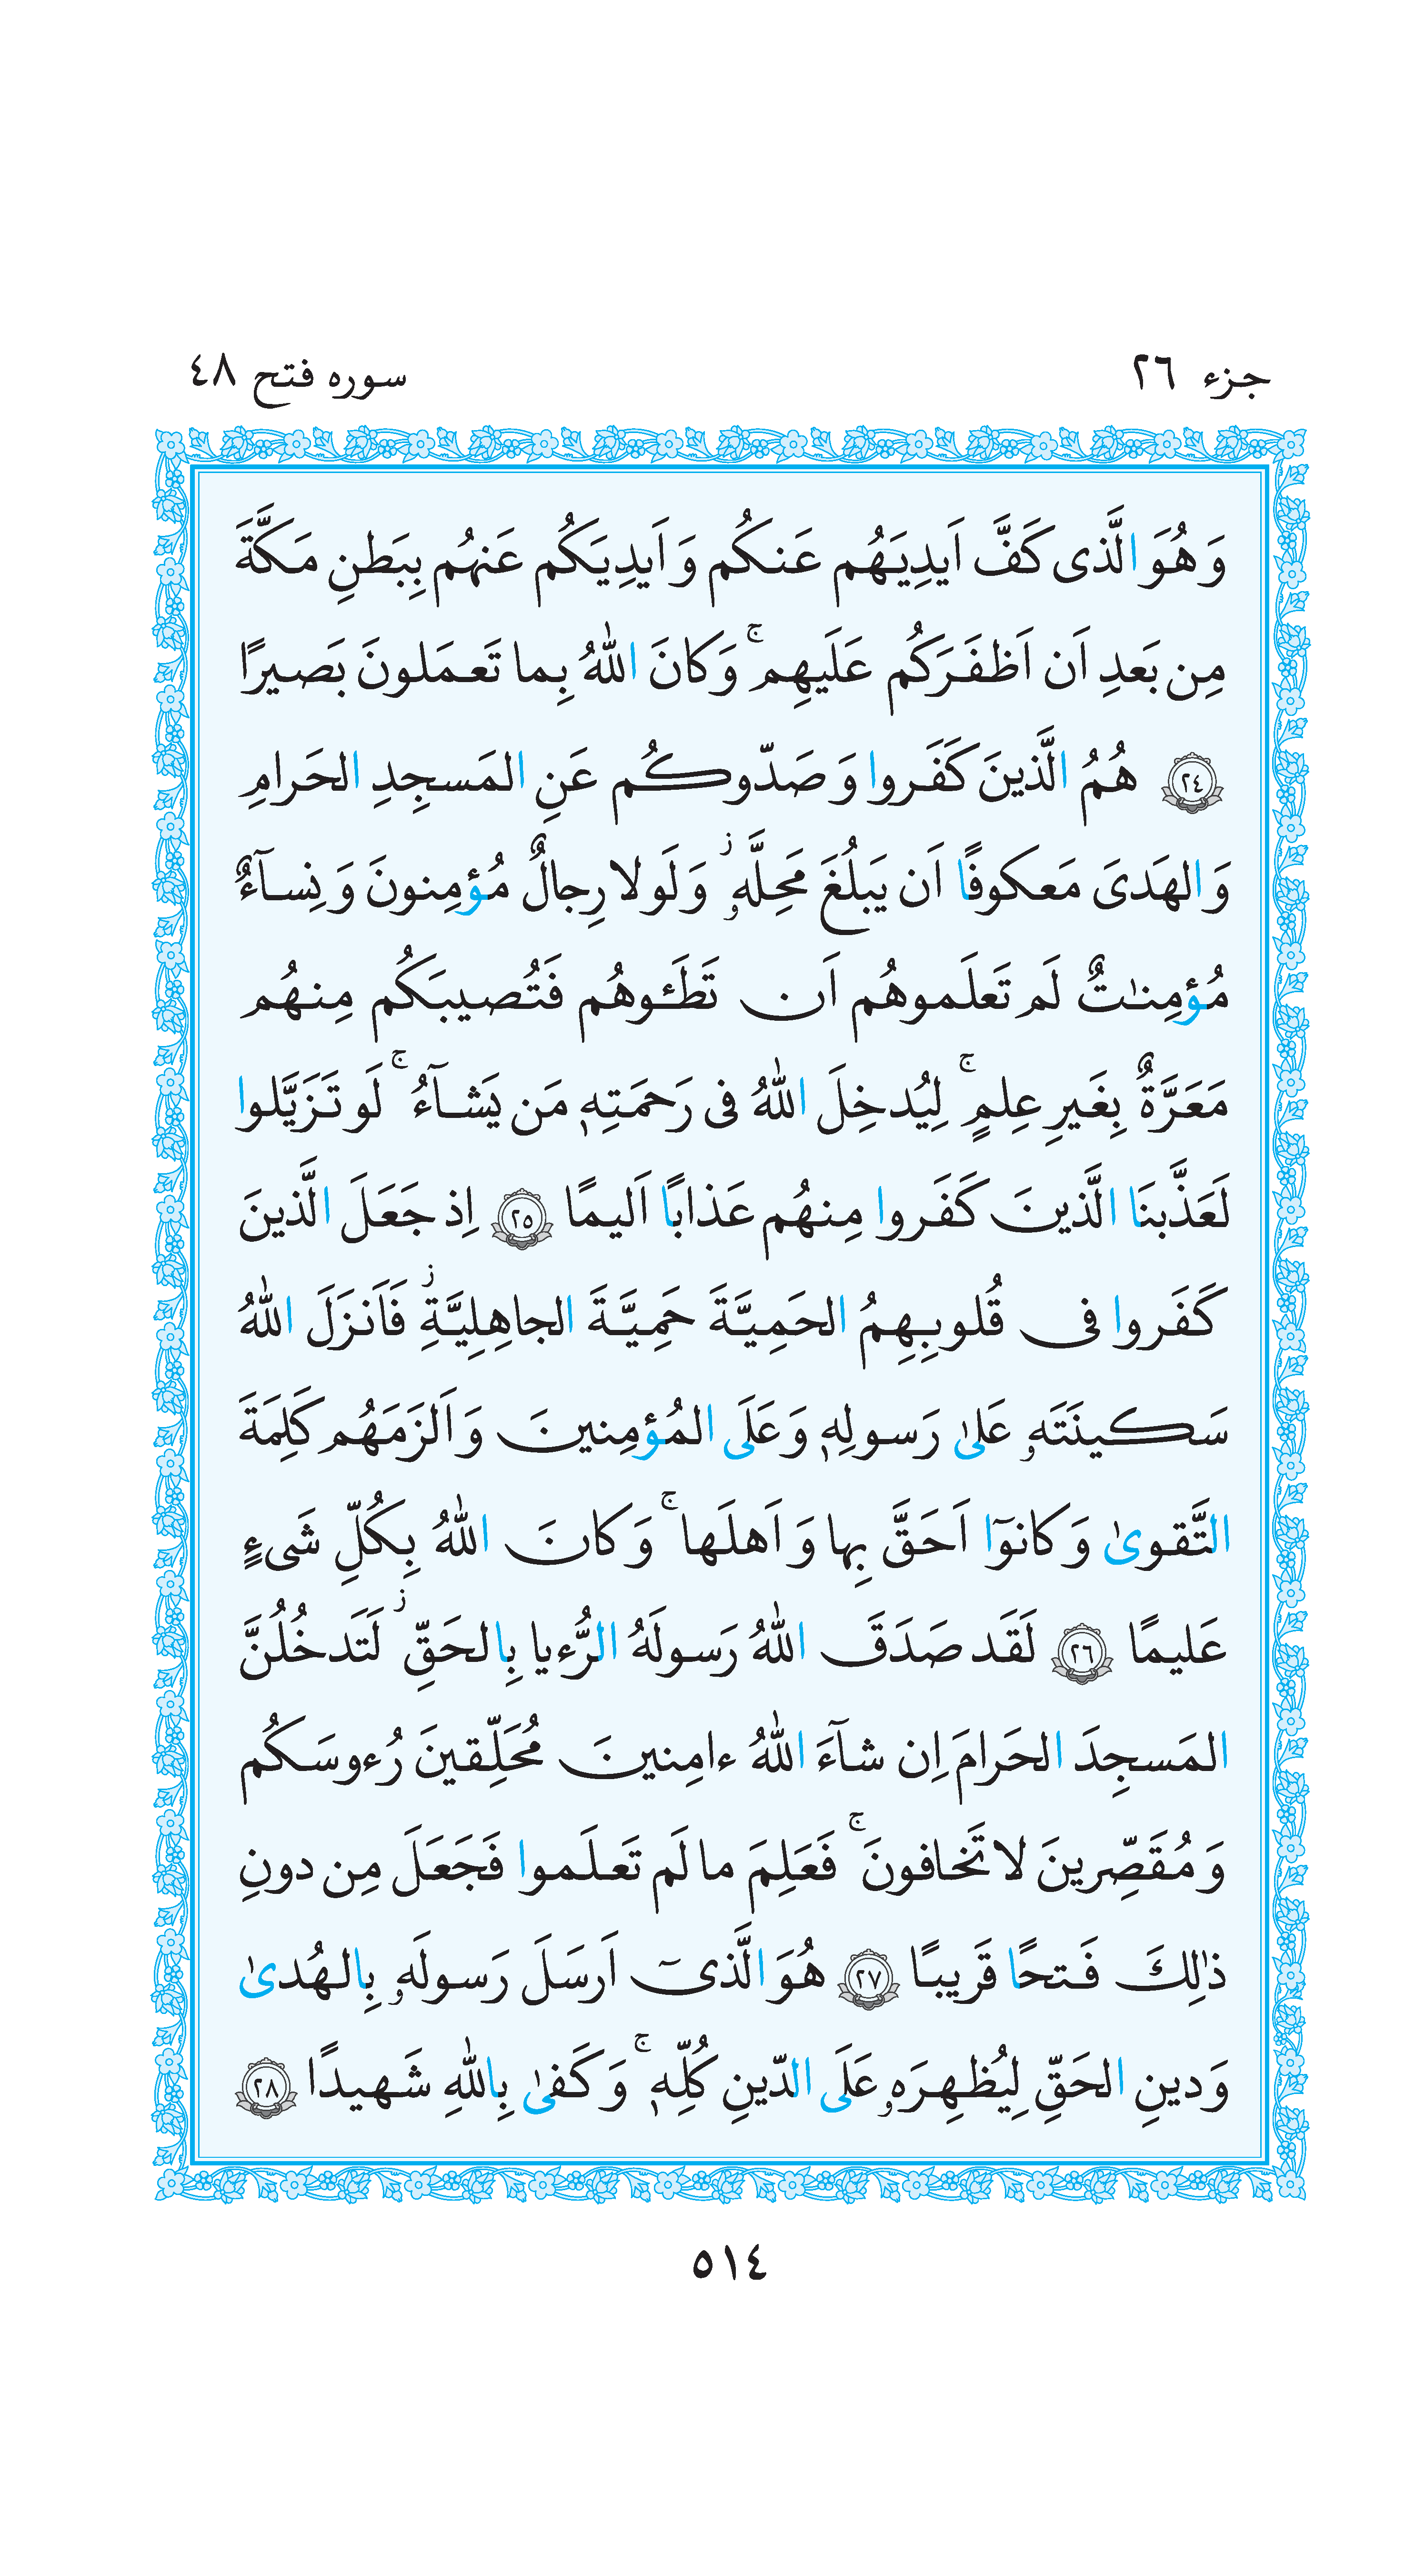 جزء ٢٦
سوره فتح ٤٨
وَ هُوَ الَّذی كَفَّ اَیدِیَهُم عَنكُم وَ اَیدِیَكُم عَنهُم بِبَطنِ مَكَّةَ
مِن بَعدِ اَن اَظفَرَكُم عَلَیهِم ۚ وَ كانَ اللّٰهُ بِما تَعمَلونَ بَصیرًا
﴿٢٤﴾ هُمُ الَّذینَ كَفَروا وَ صَدّوكُم عَنِ المَسجِدِ الحَرامِ
وَ الهَدیَ مَعكوفًا اَن یَبلُغَ مَحِلَّهٗ ۫ وَ لَولا رِجالٌ مُؤمِنونَ وَ نِسآءٌ
مُؤمِنٰتٌ لَم تَعلَموهُم اَن تَطَـئوهُم فَتُصیبَكُم مِنهُم
مَعَرَّةٌ بِغَیرِ عِلمٍ ۚ لِیُدخِلَ اللّٰهُ فی رَحمَتِهٖ مَن یَشآءُ ۚ لَو تَزَیَّلوا
لَعَذَّبنَا الَّذینَ كَفَروا مِنهُم عَذابًا اَلیمًا ﴿٢٥﴾ اِذ جَعَلَ الَّذینَ
كَفَروا فی قُلوبِهِمُ الحَمِیَّةَ حَمِیَّةَ الجاهِلِیَّةِ ۫ فَاَنزَلَ اللّٰهُ
سَكینَتَهٗ عَلیٰ رَسولِهٖ وَ عَلَی المُؤمِنینَ وَ اَلزَمَهُم كَلِمَةَ
التَّقویٰ وَ كانوٓا اَحَقَّ بِها وَ اَهلَها ۚ وَ كانَ اللّٰهُ بِكُلِّ شَیءٍ
عَلیمًا ﴿٢٦﴾ لَقَد صَدَقَ اللّٰهُ رَسولَهُ الرُّءیا بِالحَقِّ ۫ لَتَدخُلُنَّ
المَسجِدَ الحَرامَ اِن شآءَ اللّٰهُ ءامِنینَ مُحَلِّقینَ رُءوسَكُم
وَ مُقَصِّرینَ لا تَخافونَ ۚ فَعَلِمَ ما لَم تَعلَموا فَجَعَلَ مِن دونِ
ذٰلِكَ فَتحًا قَریبًا ﴿٢٧﴾ هُوَ الَّذیٓ اَرسَلَ رَسولَهٗ بِالهُدیٰ
وَ دینِ الحَقِّ لِیُظهِرَهٗ عَلَی الدّینِ كُلِّهٖ ۚ وَ كَفیٰ بِاللّٰهِ شَهیدًا ﴿٢٨﴾
٥١٤